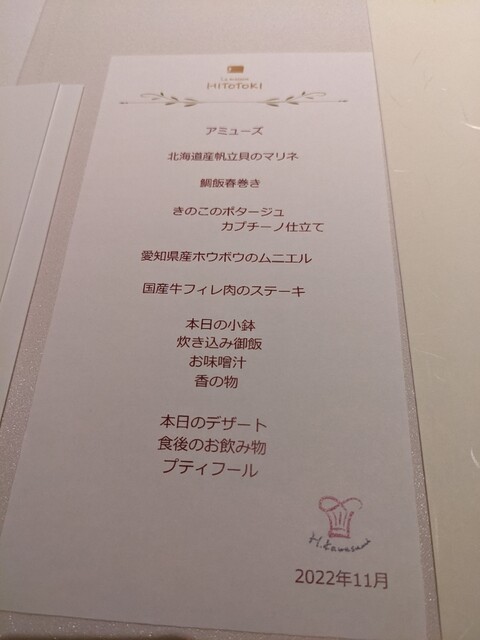 HiTOTOKi
アミューズ
北海道産帆立貝のマリネ
鯛飯春巻き
きのこのポタージュ
カプチーノ仕立て
愛知県産ホウボウのムニエル
国産牛フィレ肉のステーキ
本日の小鉢
炊き込み御飯
お味噌汁
香の物
本日のデザート
食後のお飲み物
プティフール
H.Kawasaki
2022年11月